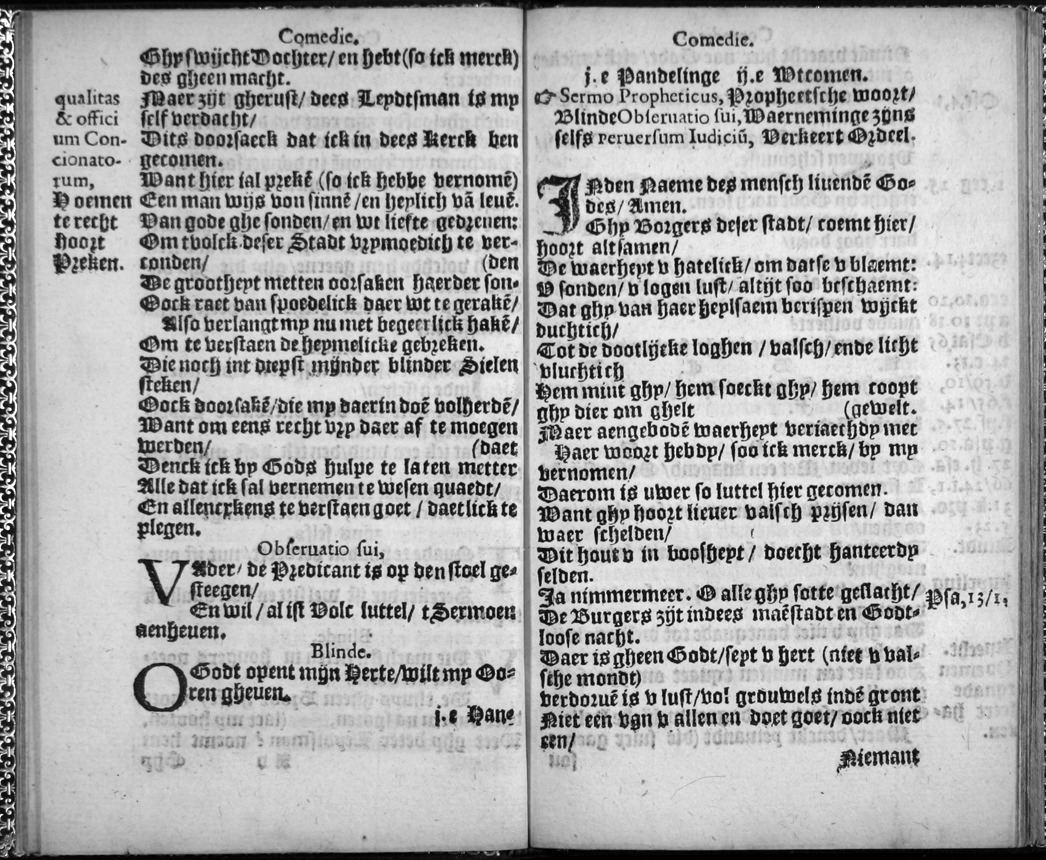 Comedie.
Ghy swijcht Dochter/ en hebt (so ick merck)
des gheen macht.
Maer zijt gherust/ dees Leydtsman is my
self verdacht/
Dits doorsaeck dat ick in dees Kerck ben
gecomen.
Want hier sal prekē (so ick hebbe vernomē)
Een man wijs von sinnē/en heylich vā leuē.
Van gode ghe sonden/en wt liefte gedreuen:
Om tvolck deser Stadt vrymoedich te ver-
conden/ (den
De grootheyt metten oorsaken haerder son-
Oock raet van spoedelick daer wt te gerakē/
Also verlangt my nu met begeerlick hakē/
Om te verstaen de heymelicke gebreken.
Die noch int diepst mijnder blinder Sielen
steken/
Oock doorsakē/die my daerin doē volherdē/
Want om eens recht vry daer af te moegen
werden/ (daet
Denck ick by Gods hulpe te laten metter
Alle dat ick sal vernemen te wesen quaedt/
En allenrkens te verstaen goet / daetlick te
plegen.
qualitas
& offici
um Con-
cionato-
rum,
Hoemen
te recht
hoort
Preken.
Obseruatio sui,
VAder/ de Predicant is op den stoel ge-
steegen/
En wil / al ist Volc luttel/ t Sermoen
aenheuen.
Blinde.
O Godt opent mijn Herte/wilt my Oo-
ren gheuen.
j.e Han-
Comedie.
j.e Handelinge ij.e Wtcomen.
☞ Sermo Propheticus, Propheetsche woort/
Blinde Obseruatio sui, Waerneminge zijns
selfs peruersum Iudiciū, Verkeert Ordeel.
INden Naeme des mensch liuendē Go-
des/ Amen.
Ghy Borgers deser stadt/ coemt hier/
hoort altsamen/
De waerheyt v hatelick/ om datse v blaemt:
V sonden/ v logen lust/ altijt soo beschaemt:
Dat ghy van haer heylsaem berispen wijckt
duchtich/
Tot de dootlijcke loghen / valsch/ ende licht
vluchtich
Hem mint ghy/ hem soeckt ghy/ hem coopt
ghy dier om ghelt (gewelt.
Maer aengebodē waerheyt veriaechdy met
Haer woort hebdy/ soo ick merck/ by my
vernomen/
Daerom is uwer so luttel hier gecomen.
Want ghy hoort lieuer valsch prijsen/ dan
waer schelden/
Dit hout v in boosheyt / doecht hanteerdy
selden.
Ja nimmermeer. O alle ghy sotte geslacht/
De Burgers zijt indees maēstadt en Godt-
loose nacht.
Daer is gheen Godt/seyt v hert (niet v val-
sche mondt)
verdoruē is v lust/vol grouwels indē gront
Niet een van v allen en doet goet/ oock niet
een/
Psa,13/1.
Niemant